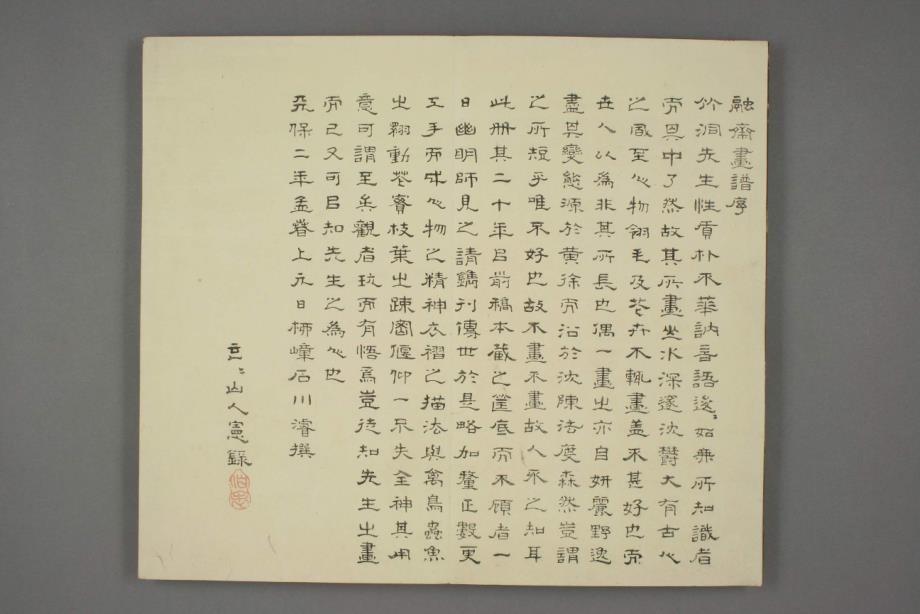 融齋畫譜序
竹洞先生性質朴不華訥言語逡〻如無所知識者
而其中了然故其所畫山水深邃沈鬱大有古人
之風至人物翎毛及花卉不輒畫盖不甚好也而
世人以為非其所長也偶一畫之亦自妍麗野逸
盡其變態源於黄徐而沿於沈陳法度森然豈謂
之所短乎唯不好也故不畫不畫故人不之知耳
此冊其二十年㠯前稿本蔵之筐底而不顧者一
日幽明師見之請鐫刊傳世於是略加釐正數更
工手而成人物之精神衣褶之描法與禽鳥蟲魚
之翱動花賽枝葉之疎密偃仰一不失全神其用
意可謂至矣觀者玩而有悟焉豈徒知先生之畫
而已又可㠯知先生之為人也
天保二年孟春上元日柹嶂石川濬撰
山人憲錄